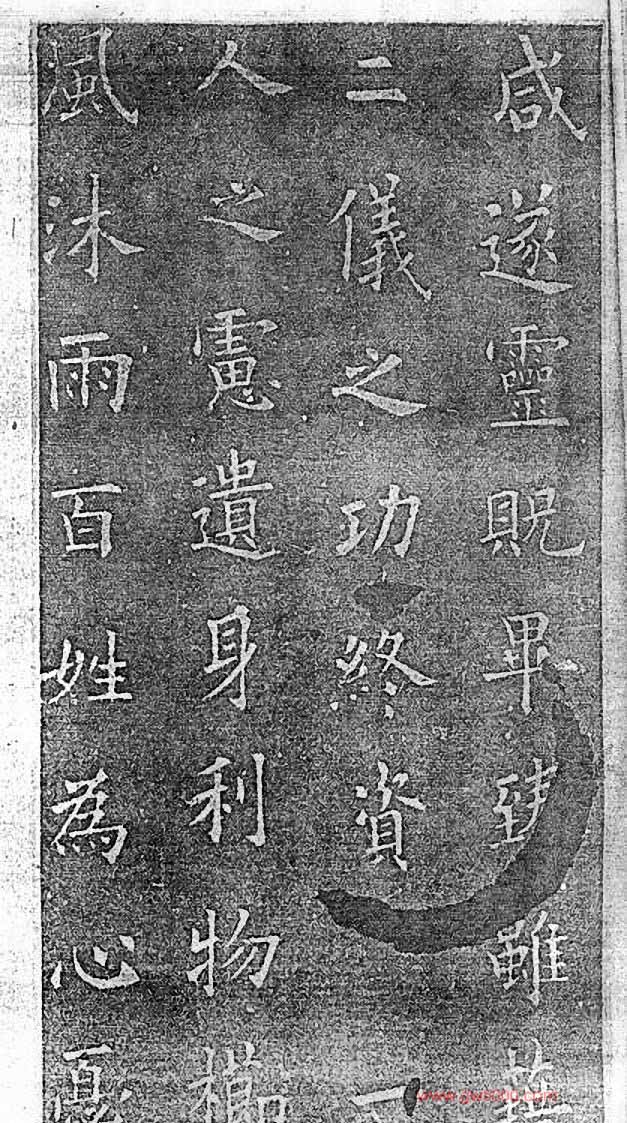 咸遂靈貺畢臻雖藉
二儀之功終資一
人之慮遺身利物櫛
風沐雨百姓為心憂